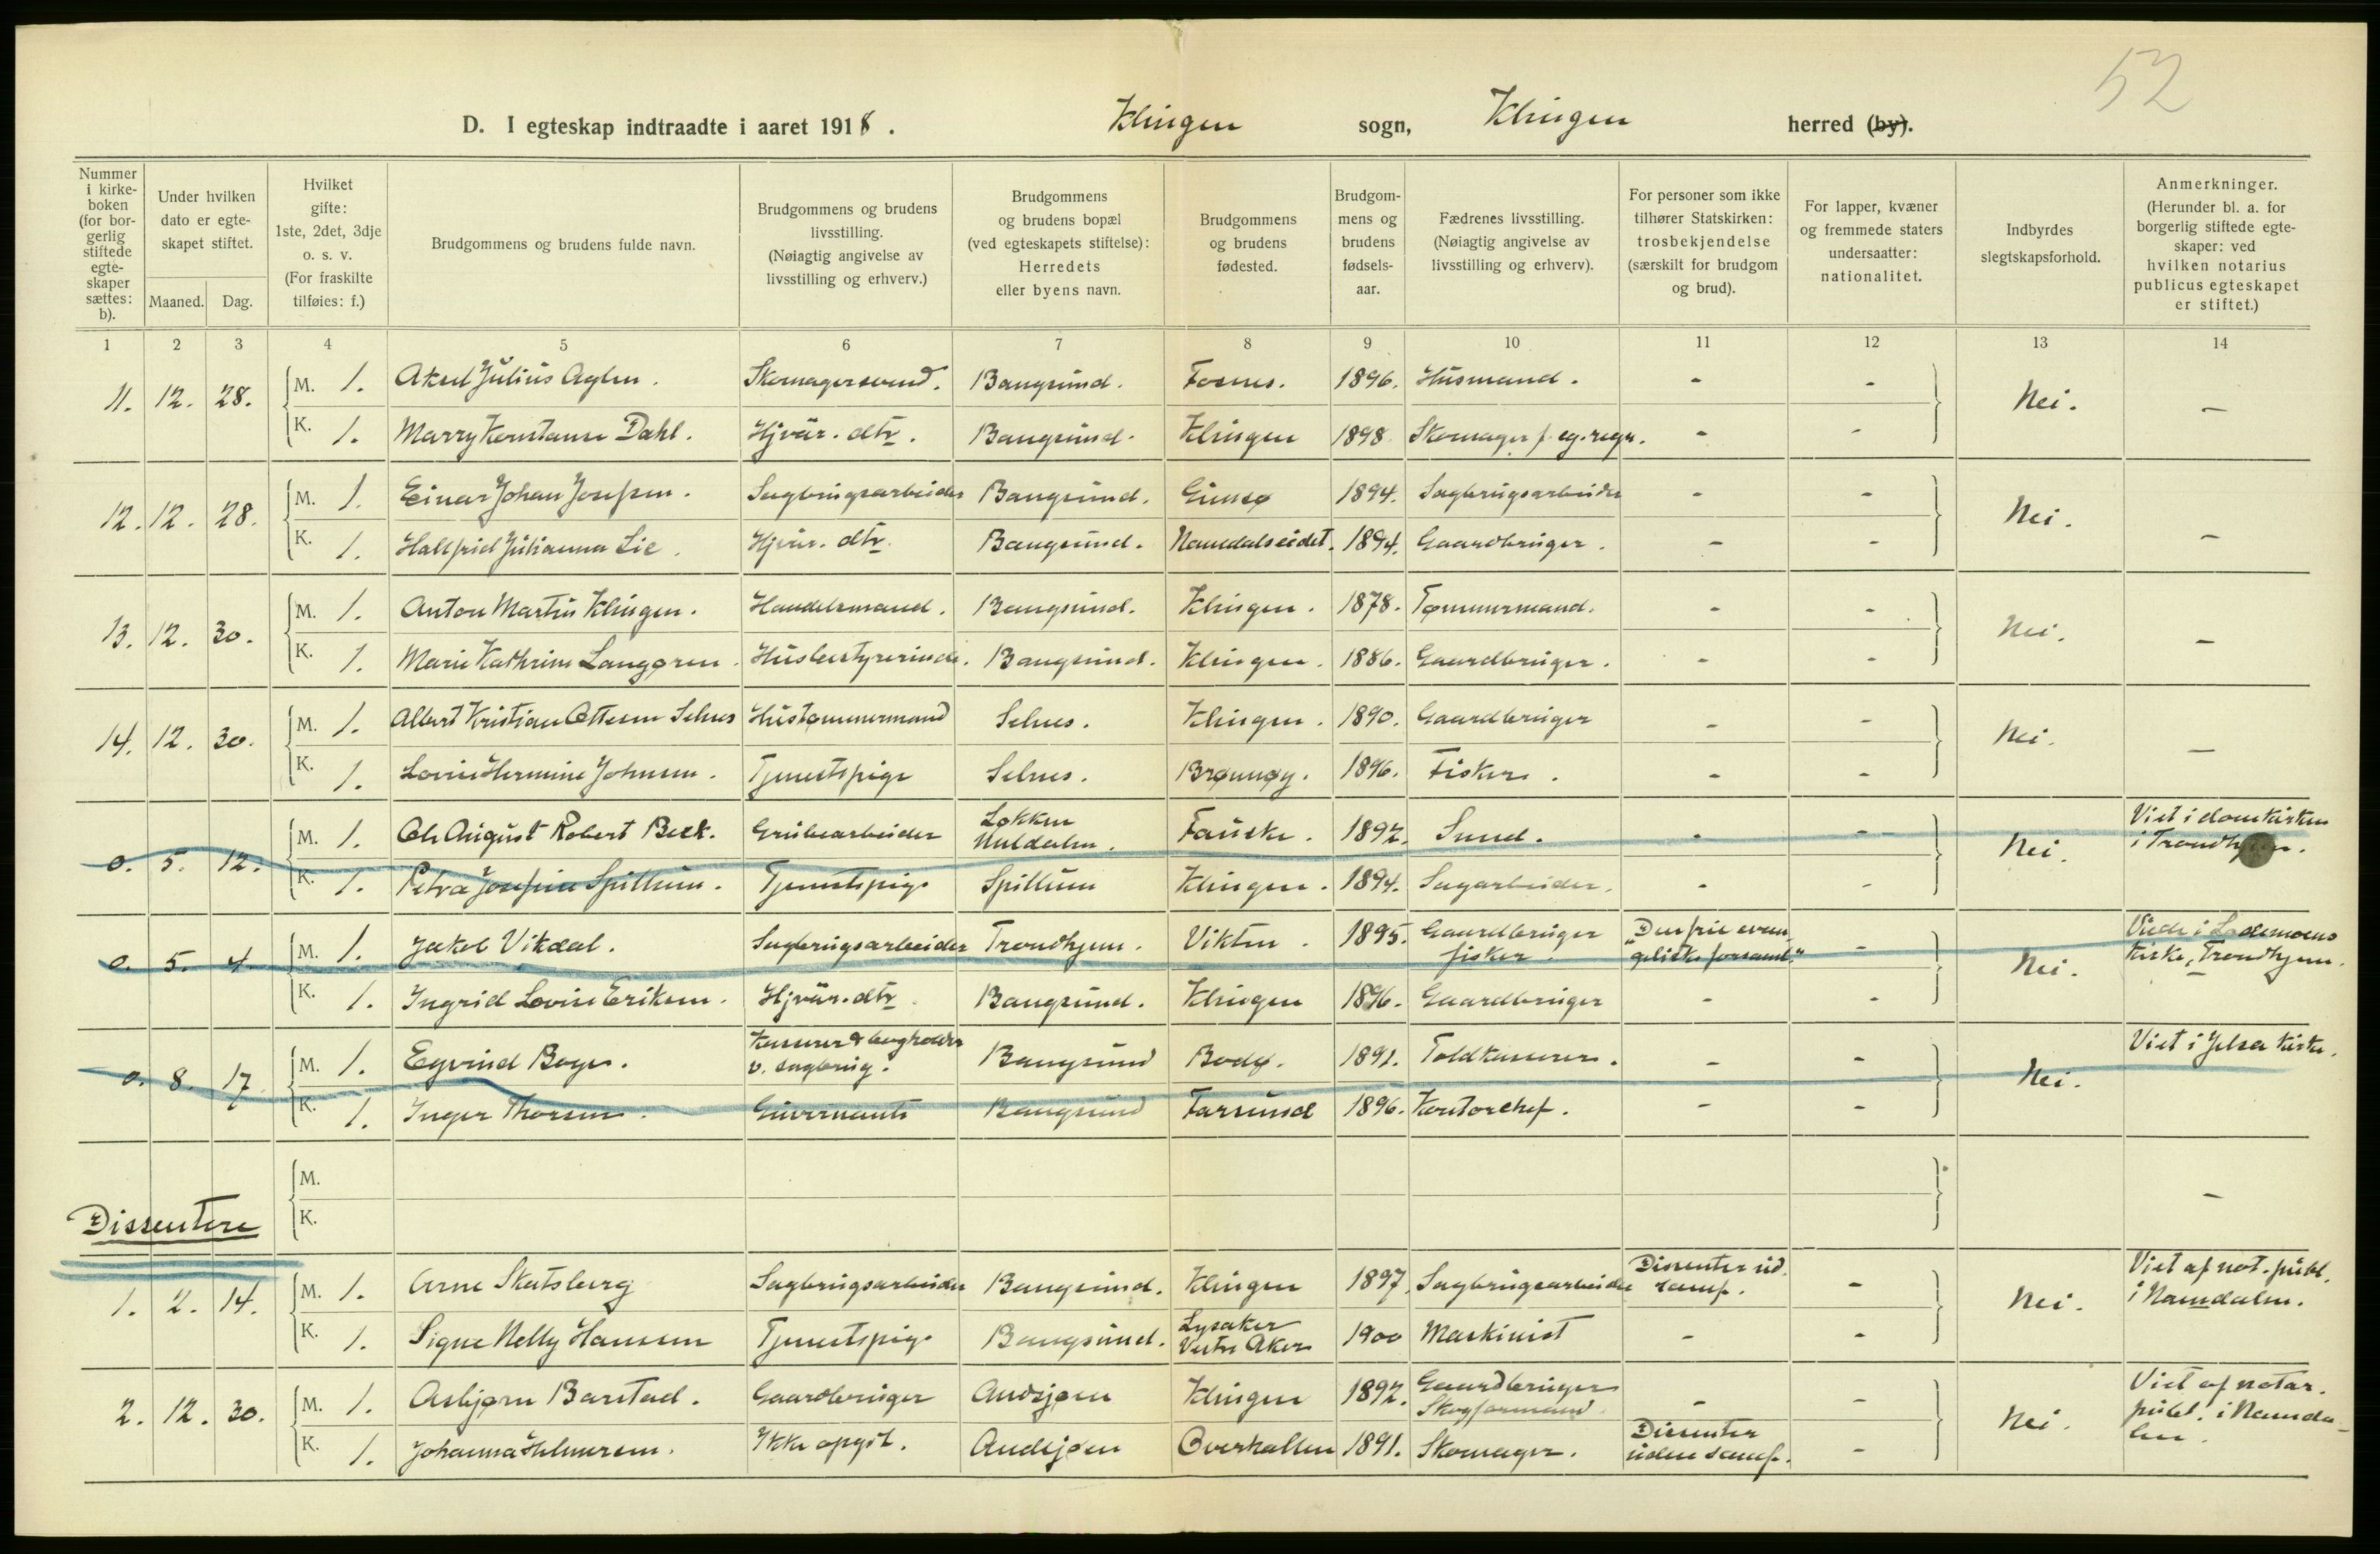 52
D. I egteskap indtraadte i aaret 1918. Klingen sogn, Klingen herred (by).
Nummer i kirkeboken (for borgerlig stiftede egteskaper sættes: b).
Under hvilken dato er egteskapet stiftet.
Maaned. Dag.
Hvilket gifte: 1ste, 2det, 3dje o. s. v. (For fraskilte tilføies: f.)
Brudgommens og brudens fulde navn.
Brudgommens og brudens livsstilling. (Nøiagtig angivelse av livsstilling og erhverv.)
Brudgommens og brudens bopæl (ved egteskapets stiftelse): Herredets eller byens navn.
Brudgommens og brudens fødested.
Brudgommens og brudens fødselsaar.
Fædrenes livsstilling. (Nøiagtig angivelse av livsstilling og erhverv).
For personer som ikke tilhører Statskirken: trosbekjendelse (særskilt for brudgom og brud).
For lapper, kvæner og fremmede staters undersaatter: nationalitet.
Indbyrdes slegtskapsforhold.
Anmerkninger. (Herunder bl. a. for borgerlig stiftede egteskaper: ved hvilken notarius publicus egteskapet er stiftet.)
1 2 3 4 5 6 7 8 9 10 11 12 13 14
11. 12. 28. M. 1. Aksel Julius Aglen. Skomagersvend. Bangsund. Fosnes. 1896. Husmand. - - Nei. -
K. 1. Marry Konstanse Dahl. Hjvær. dtr. Bangsund. Klingen 1898 Skomager f. eg. regn. - -
12. 12. 28. M. 1. Einar Johan Josefsen. Sagbrugsarbeider Bangsund. Gimsø 1894. Sagbrugsarbeider - - Nei. -
K. 1. Hallfrid Julianna Lie. Hjvær. dtr. Bangsund. Namdalseidet. 1894. Gaardbruger. - -
13. 12. 30. M. 1. Anton Martin Klingen. Handelsmand. Bangsund. Klingen. 1878. Tømmermand. - - Nei. -
K. 1. Marie Kathrine Langøren. Husbestyrerinde. Bangsund. Klingen. 1886. Gaardbruger. - -
14. 12. 30. M. 1. Albert Kristian Ottesen Selnes Hustømmermand Selnes. Klingen. 1890. Gaardbruger - - Nei. -
K. 1. Lovise Hermine Johnsen. Tjenestpige Selnes. Brønnøy. 1896. Fisker. - -
0. 5. 12. M. 1. Ole August Robert Beck. Grubearbeider Løkken Meldalen. Fauske. 1892. Smed. - - Nei. Viet i domkirken i Trondhjem.
K. 1. Petra Josefine Spillum. Tjenestpige Spillum Klingen. 1894. Sagarbeider. - -
0. 5. 4 M. 1. Jakob Vikdal. Sagbrugsarbeider Trondhjem. Vikten. 1895. Gaardbruger fisker. "Den frie evangeliske forsaml." - Nei. Viede i Lademoens Kirke, Trondhjem.
K. 1. Ingrid Lovise Eriksen. Hjvær. dtr Bangsund. Klingen 1896. Gaardbruger - -
0. 8. 17 M. 1. Eyvind Boye. Kasserer & bogholder v. sagbrug. Bangsund Bodø. 1891. Toldkasserer. - - Nei. Viet i Jelsa kirke.
K. 1. Inger Thorsen. Guvernante Bangsund Farsund 1896. Kontorchef. - -
M.
K. -
Dissentere
1. 2. 14. M. 1. Arne Skatsberg Sagbrugsarbeider Bangsund. Klingen 1897. Sagbrugsarbeider Dissenter ud. samf. - Nei. Viet af not. publ. i Namdalen.
K. 1. Signe Nelly Hansen Tjenestpige Bangsund. Lysaker Vestre Aker 1900 Maskinist - -
2. 12. 30. M. 1. Asbjørn Barstad. Gaardbruger Audsjøen Klingen 1892. Gaardbruger Skogformand - - Nei. Viet af notar. publ. i Namdalen.
K. 1. Johanna Helmersen. Ikke opgit. Audsjøen Overhallen 1891. Skomager. Dissenter uden samf. -